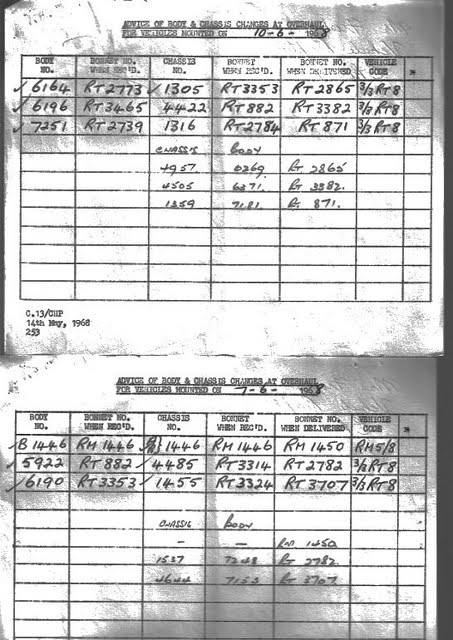 ADVICE OF BODY & CHASSIS CHANGES AT OVERHAUL
FOR VEHICLES MOUNTED ON 10-6- 1968
BODY NO. BONNET NO. WHEN REC'D. CHASSIS NO. BONNET WHEN REC'D. BONNET NO. WHEN DELIVERED VEHICLE CODE *
✓ 6164 RT2773 ✓ 1305 RT3353 RT2865 3/3 RT8
✓ 6196 RT3465 4422 RT882 RT3382 3/3 RT8
✓ 7251 RT2739 1316 RT2784 RT871 3/3 RT8
CHASSIS BODY
4957 6269 RT 2865
4505 6371 RT 3382.
1359 7181 RT 871.
C.13/CHP
14th May, 1968
253
ADVICE OF BODY & CHASSIS CHANGES AT OVERHAUL
FOR VEHICLES MOUNTED ON 7-6- 1968
BODY NO. BONNET NO. WHEN REC'D. CHASSIS NO. BONNET WHEN REC'D. BONNET NO. WHEN DELIVERED VEHICLE CODE *
B1446 RM1446 1446 RM1446 RM1450 RM5/8
✓ 5922 RT882 ✓ 4485 RT3314 RT2782 3/3 RT8
✓ 6190 RT3353 ✓ 1455 RT3324 RT3707 3/3 RT8
CHASSIS BODY
— — RM 1450
1537 7248 RT 2782
4644 7153 RT 3707